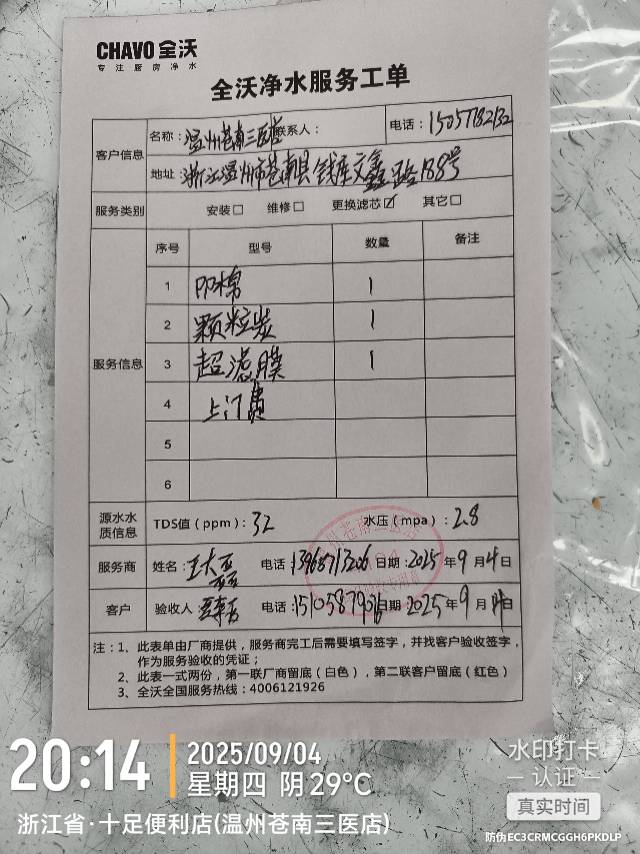 CHAVO 全沃
专注厨房净水
全沃净水服务工单
客户信息 名称：温州苍南三医店 联系人： 电话：15057782132
地址：浙江温州市苍南县钱库文鑫路188号
服务类别 安装□ 维修□ 更换滤芯☑ 其它□
服务信息 序号 型号 数量 备注
1 PP棉 1
2 颗粒炭 1
3 超滤膜 1
4 上门费
5
6
源水水质信息 TDS值（ppm）：32 水压（mpa）：2.8
服务商 姓名：王大 电话：13968713206 日期：2025年9月4日
客户 验收人 电话：日期 2025年9月4日
注：1、此表单由厂商提供，服务商完工后需要填写签字，并找客户验收签字，
作为服务验收的凭证；
2、此表一式两份，第一联厂商留底（白色），第二联客户留底（红色）
3、全沃全国服务热线：4006121926
20:14 2025/09/04
星期四 阴 29℃
浙江省·十足便利店(温州苍南三医店)
水印打卡
认证
真实时间
防伪EC3CRMCGGH6PKDLP